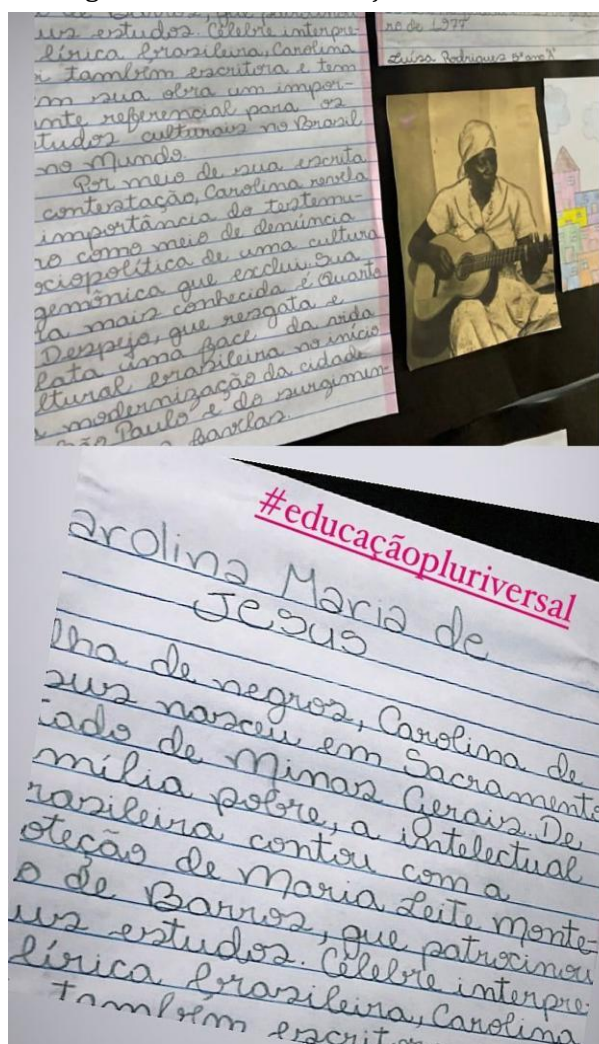 us estudos. Célebre interpre-
lírica brasileira, Carolina
i também escritora e tem
m sua obra um impor-
ante referencial para os
tudos culturais no Brasil
no Mundo.
Por meio de sua escrita
contestação, Carolina revela
importância do testemu-
ro como meio de denúncia
ociopolítica de uma cultura
gemônica que exclui. Sua
ra mais conhecida é Quarto
Despejo, que resgata e
lata uma face da vida
ltural brasileira no início
modernização da cidade
São Paulo e do surgimen-
favelas.
ro de 1977
Luísa Rodrigues 5º ano
#educaçãopluriversal
arolina Maria de
Jesus
lha de negros, Carolina de
sus nasceu em Sacramento
tado de Minas Gerais. De
mília pobre, a intelectual
rasileira contou com a
oteção de Maria Leite Monte-
o de Barros, que patrocinou
us estudos. Célebre interpre-
lírica brasileira, Carolina
também escritor